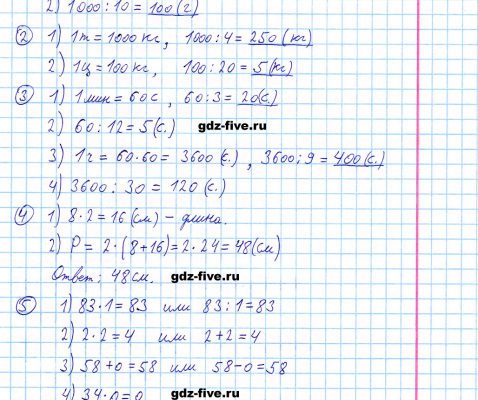 2) 1000 : 10 = 100 (г)
② 1) 1т = 1000 кг, 1000 : 4 = 250 (кг)
2) 1ц = 100 кг, 100 : 20 = 5 (кг)
③ 1) 1 мин = 60 с, 60 : 3 = 20 (с.)
2) 60 : 12 = 5 (с.)
gdz-five.ru
3) 1 ч = 60 · 60 = 3600 (с.), 3600 : 9 = 400 (с.)
4) 3600 : 30 = 120 (с.)
④ 1) 8 · 2 = 16 (см) – длина.
2) P = 2 · (8 + 16) = 2 · 24 = 48 (см)
Ответ: 48 см.
gdz-five.ru
⑤ 1) 83 · 1 = 83 или 83 : 1 = 83
2) 2 · 2 = 4 или 2 + 2 = 4
3) 58 + 0 = 58 или 58 – 0 = 58
4) 34 · 0 = 0
gdz-five.ru